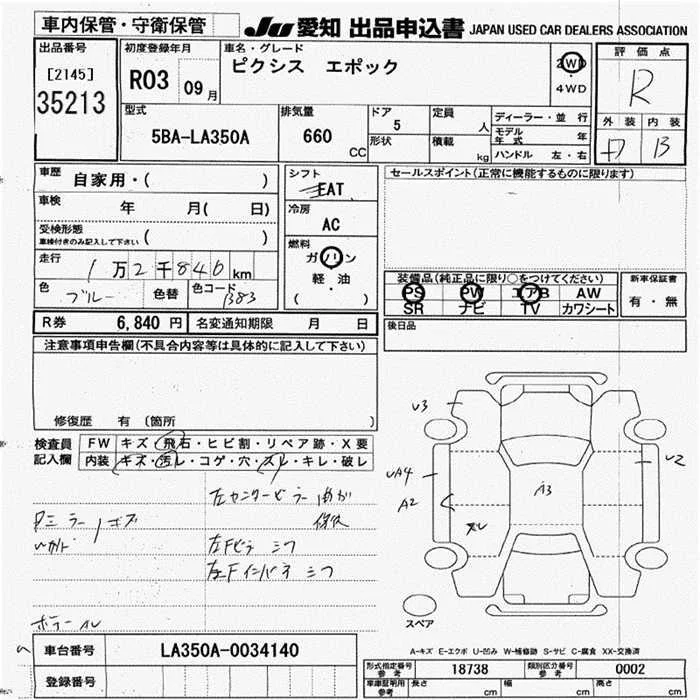 車内保管・守衛保管
JU 愛知 出品申込書 JAPAN USED CAR DEALERS ASSOCIATION
出品番号
[2145]
35213
初度登録年月
R03 09月
車名・グレード
ピクシス エポック
2WD
4WD
評価点
R
外装 内装
B
型式
5BA-LA350A
排気量
660 CC
ドア
5
形状
定員
人
積載
kg
ディーラー・並行
モデル年式 年
ハンドル 左・右
車歴
自家用・( )
車検
年 月( 日)
受検形態
車検付きのみ記入して下さい ( )
走行
1万2千840km
色
ブルー
色替
色コード
B83
シフト
FAT
冷房
AC
燃料
ガソリン
軽・油
( )
セールスポイント(正常に機能するものに限ります)
装備品(純正品に限り○をつけてください)
PS PW エアB AW
SR ナビ TV カワシート
新車保証書
有・無
後日品
R券 6,840円 名変通知期限 月 日
注意事項申告欄(不具合内容等は具体的に記入して下さい)
修復歴 有 〔箇所
検査員記入欄
FW キズ・飛石・ヒビ割・リペア跡・X要
内装 キズ・汚レ・コゲ・穴・スレ・キレ・破レ
左センターピラー曲がり
左Fピラ シワ
左Fインパネ シワ
U3
UA4
A2
A3
U2
スレ
スペア
A-キズ E-エクボ U-凹み W-補修跡 S-サビ C-腐食 XX-交換済
車台番号 LA350A-0034140
登録番号
型式指定番号 参考 18738 類別区分番号 参考 0002
車庫証明用 参考 長さ cm 幅 cm 高さ cm